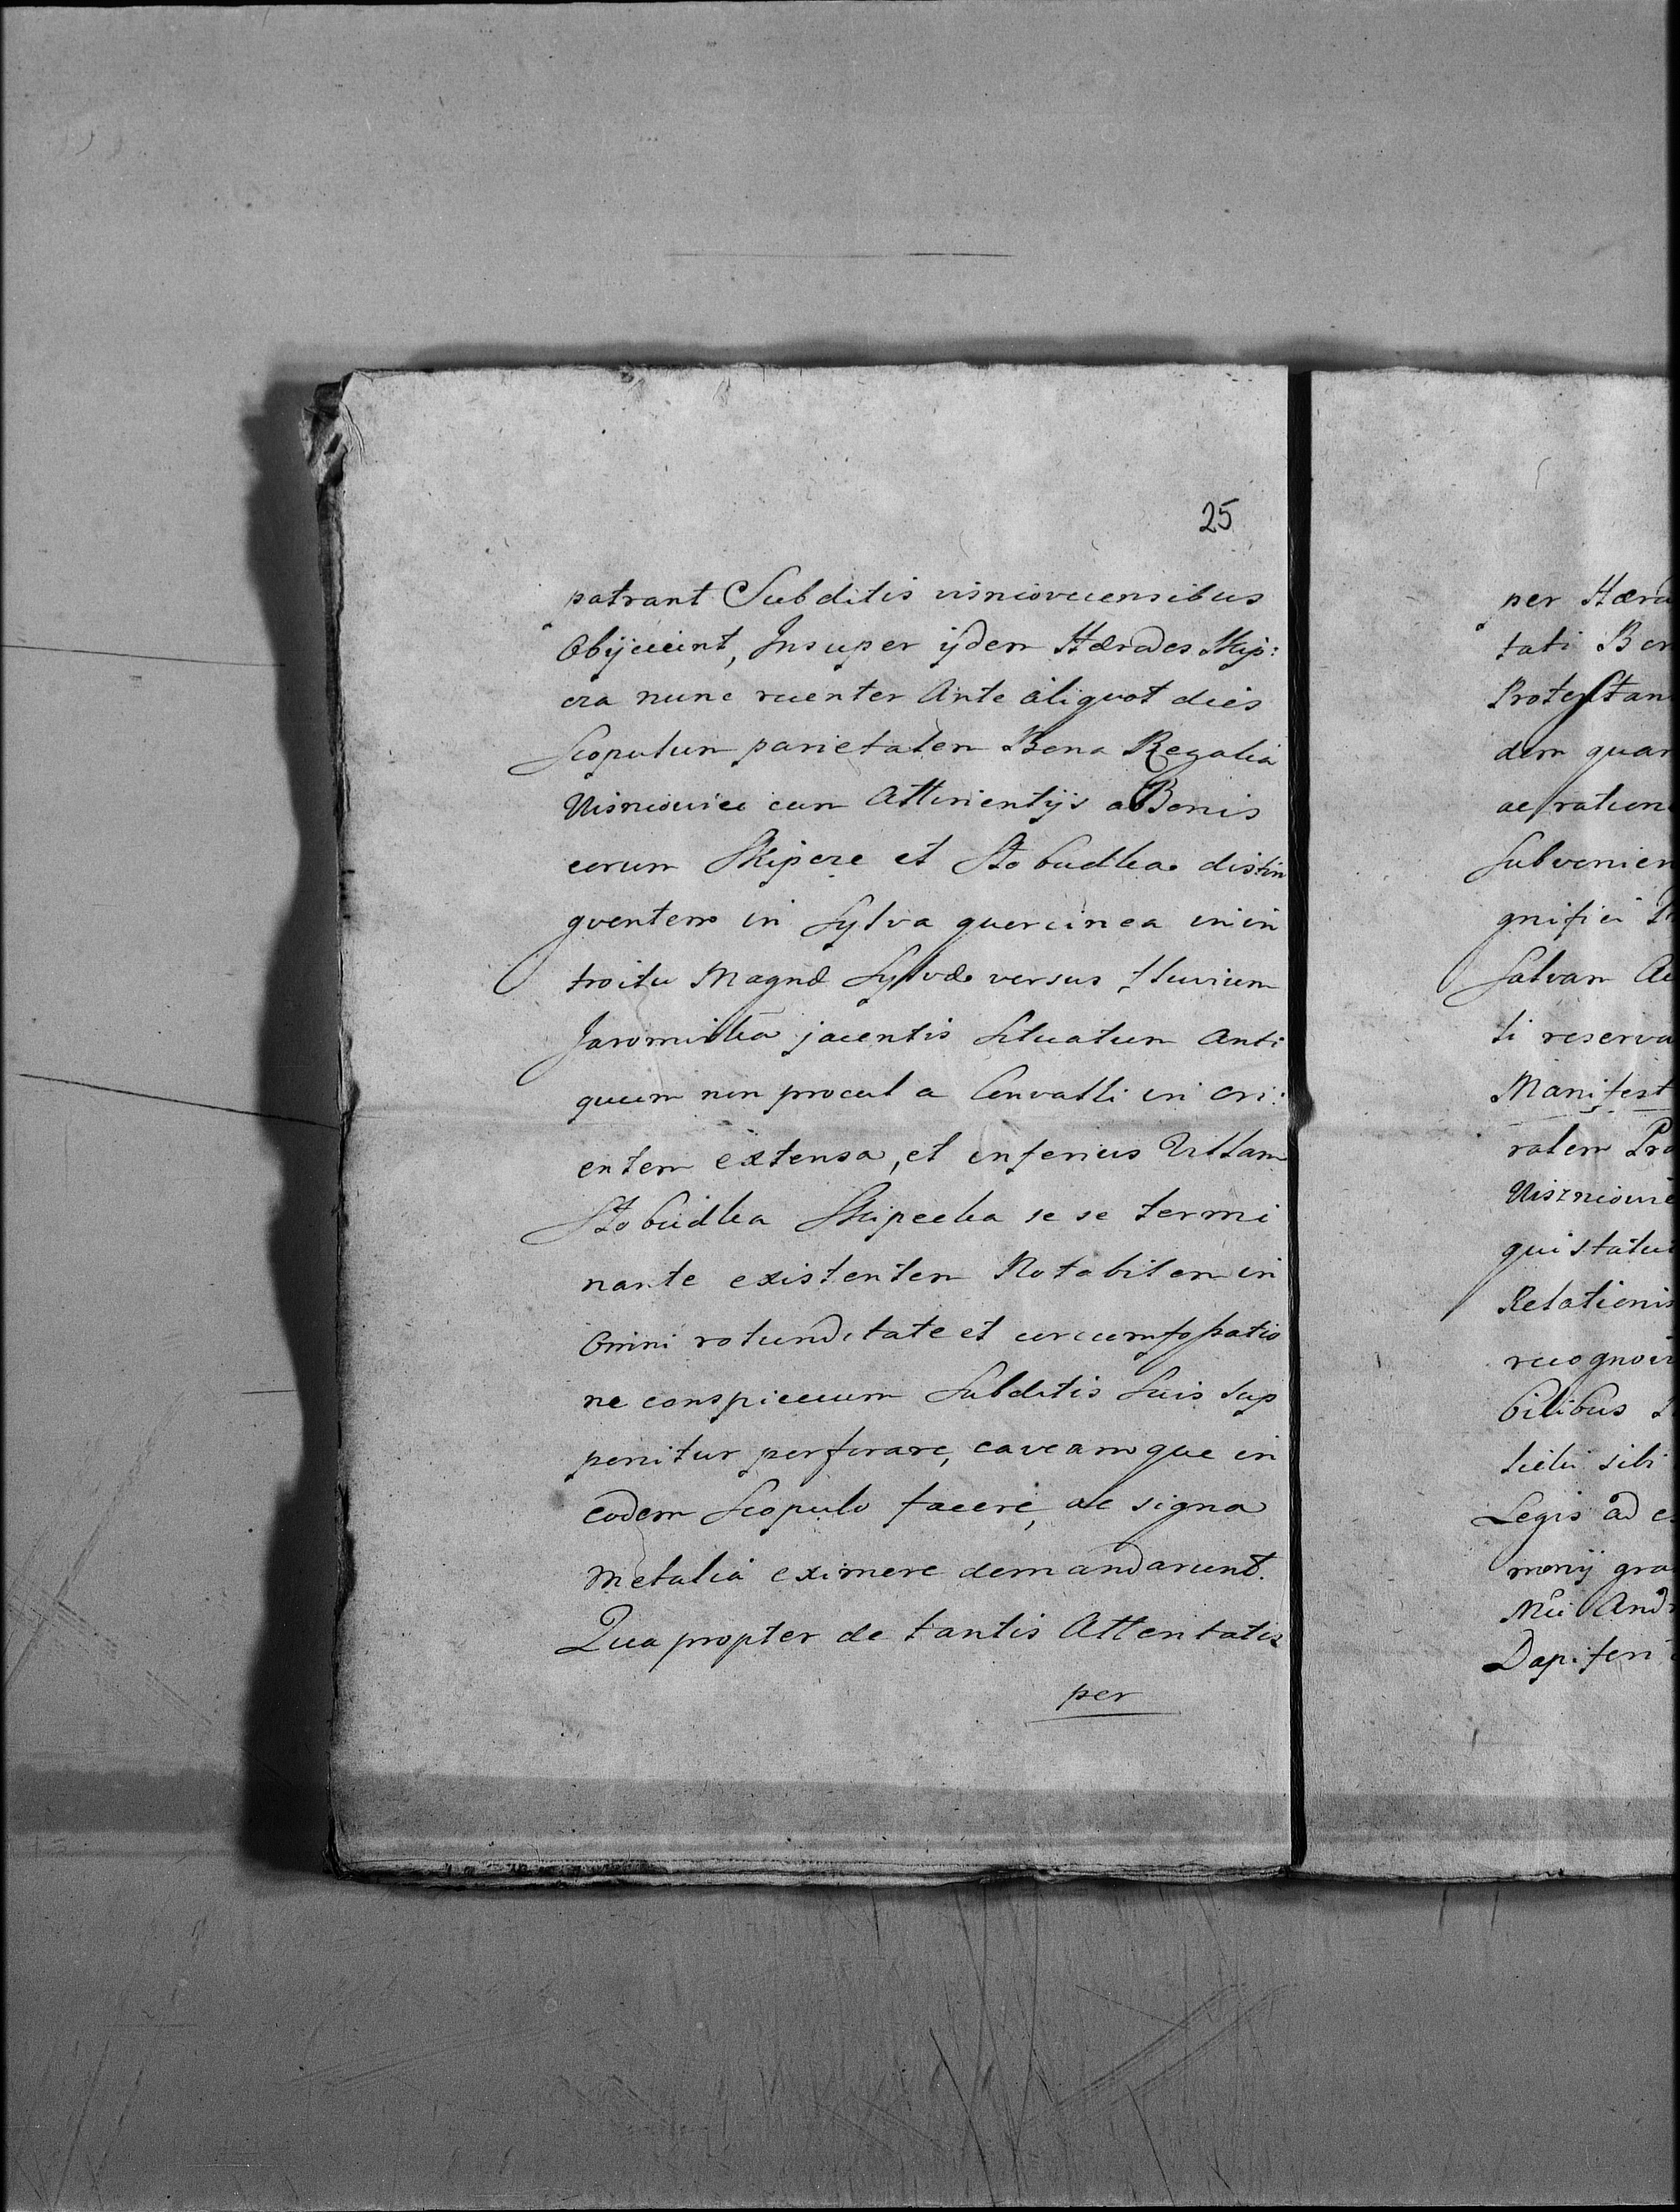 25
patrant Subditis visniovecensibus
Obijiciunt, Insuper ijdem Hæredes Skip:
cza nunc recenter Ante aliquot dies
Scopulum parietalem Bona Regalia
Visniowiec cum Attinentijs a Bonis
eorum Skipcze et Stobudka distin
gventem in Sylva quercinea in in
troitu Magnæ Sylvæ versus fluvium
Jaromirka jacentis Situatum Anti
quum non procul a Convalli in Ori:
entem extensa, et inferius Villam
Stobudka Skipecka se se termi
nante existentem Notabilem in
Omni rotunditate et circumfossatio
ne conspicuum Subditis Suis Sup
ponitur perforare, caveamque in
eodem Scopulo facere, ac signa
Metalia eximere demandarunt.
Qua propter de tantis Attentatis
per
per Hæred
tati Bon
Protestan
dem quam
ac ration
Subvenien
gnifici
Salvam Ac
ti reserva
Manifest
ralem Pro
Viszniowie
qui statui
Relationis
recognovi
bilibus
sibi
Legis ad e
monij gra
Mci And
Dapiferi